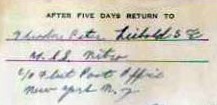 AFTER FIVE DAYS RETURN TO
Theodore Peter Liebold S 2/c
U.S.S. Nitro
c/o Fleet Post Office
New York N.Y.